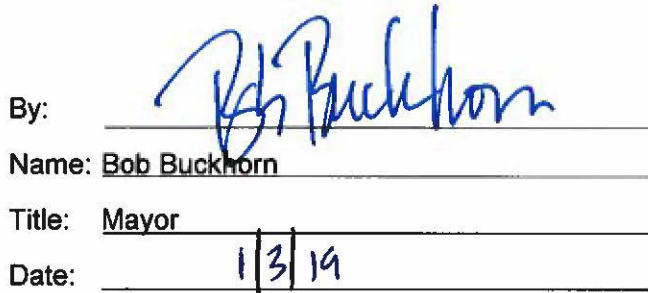 By: Bob Buckhorn
Name: Bob Buckhorn
Title: Mayor
Date: 1|3|19